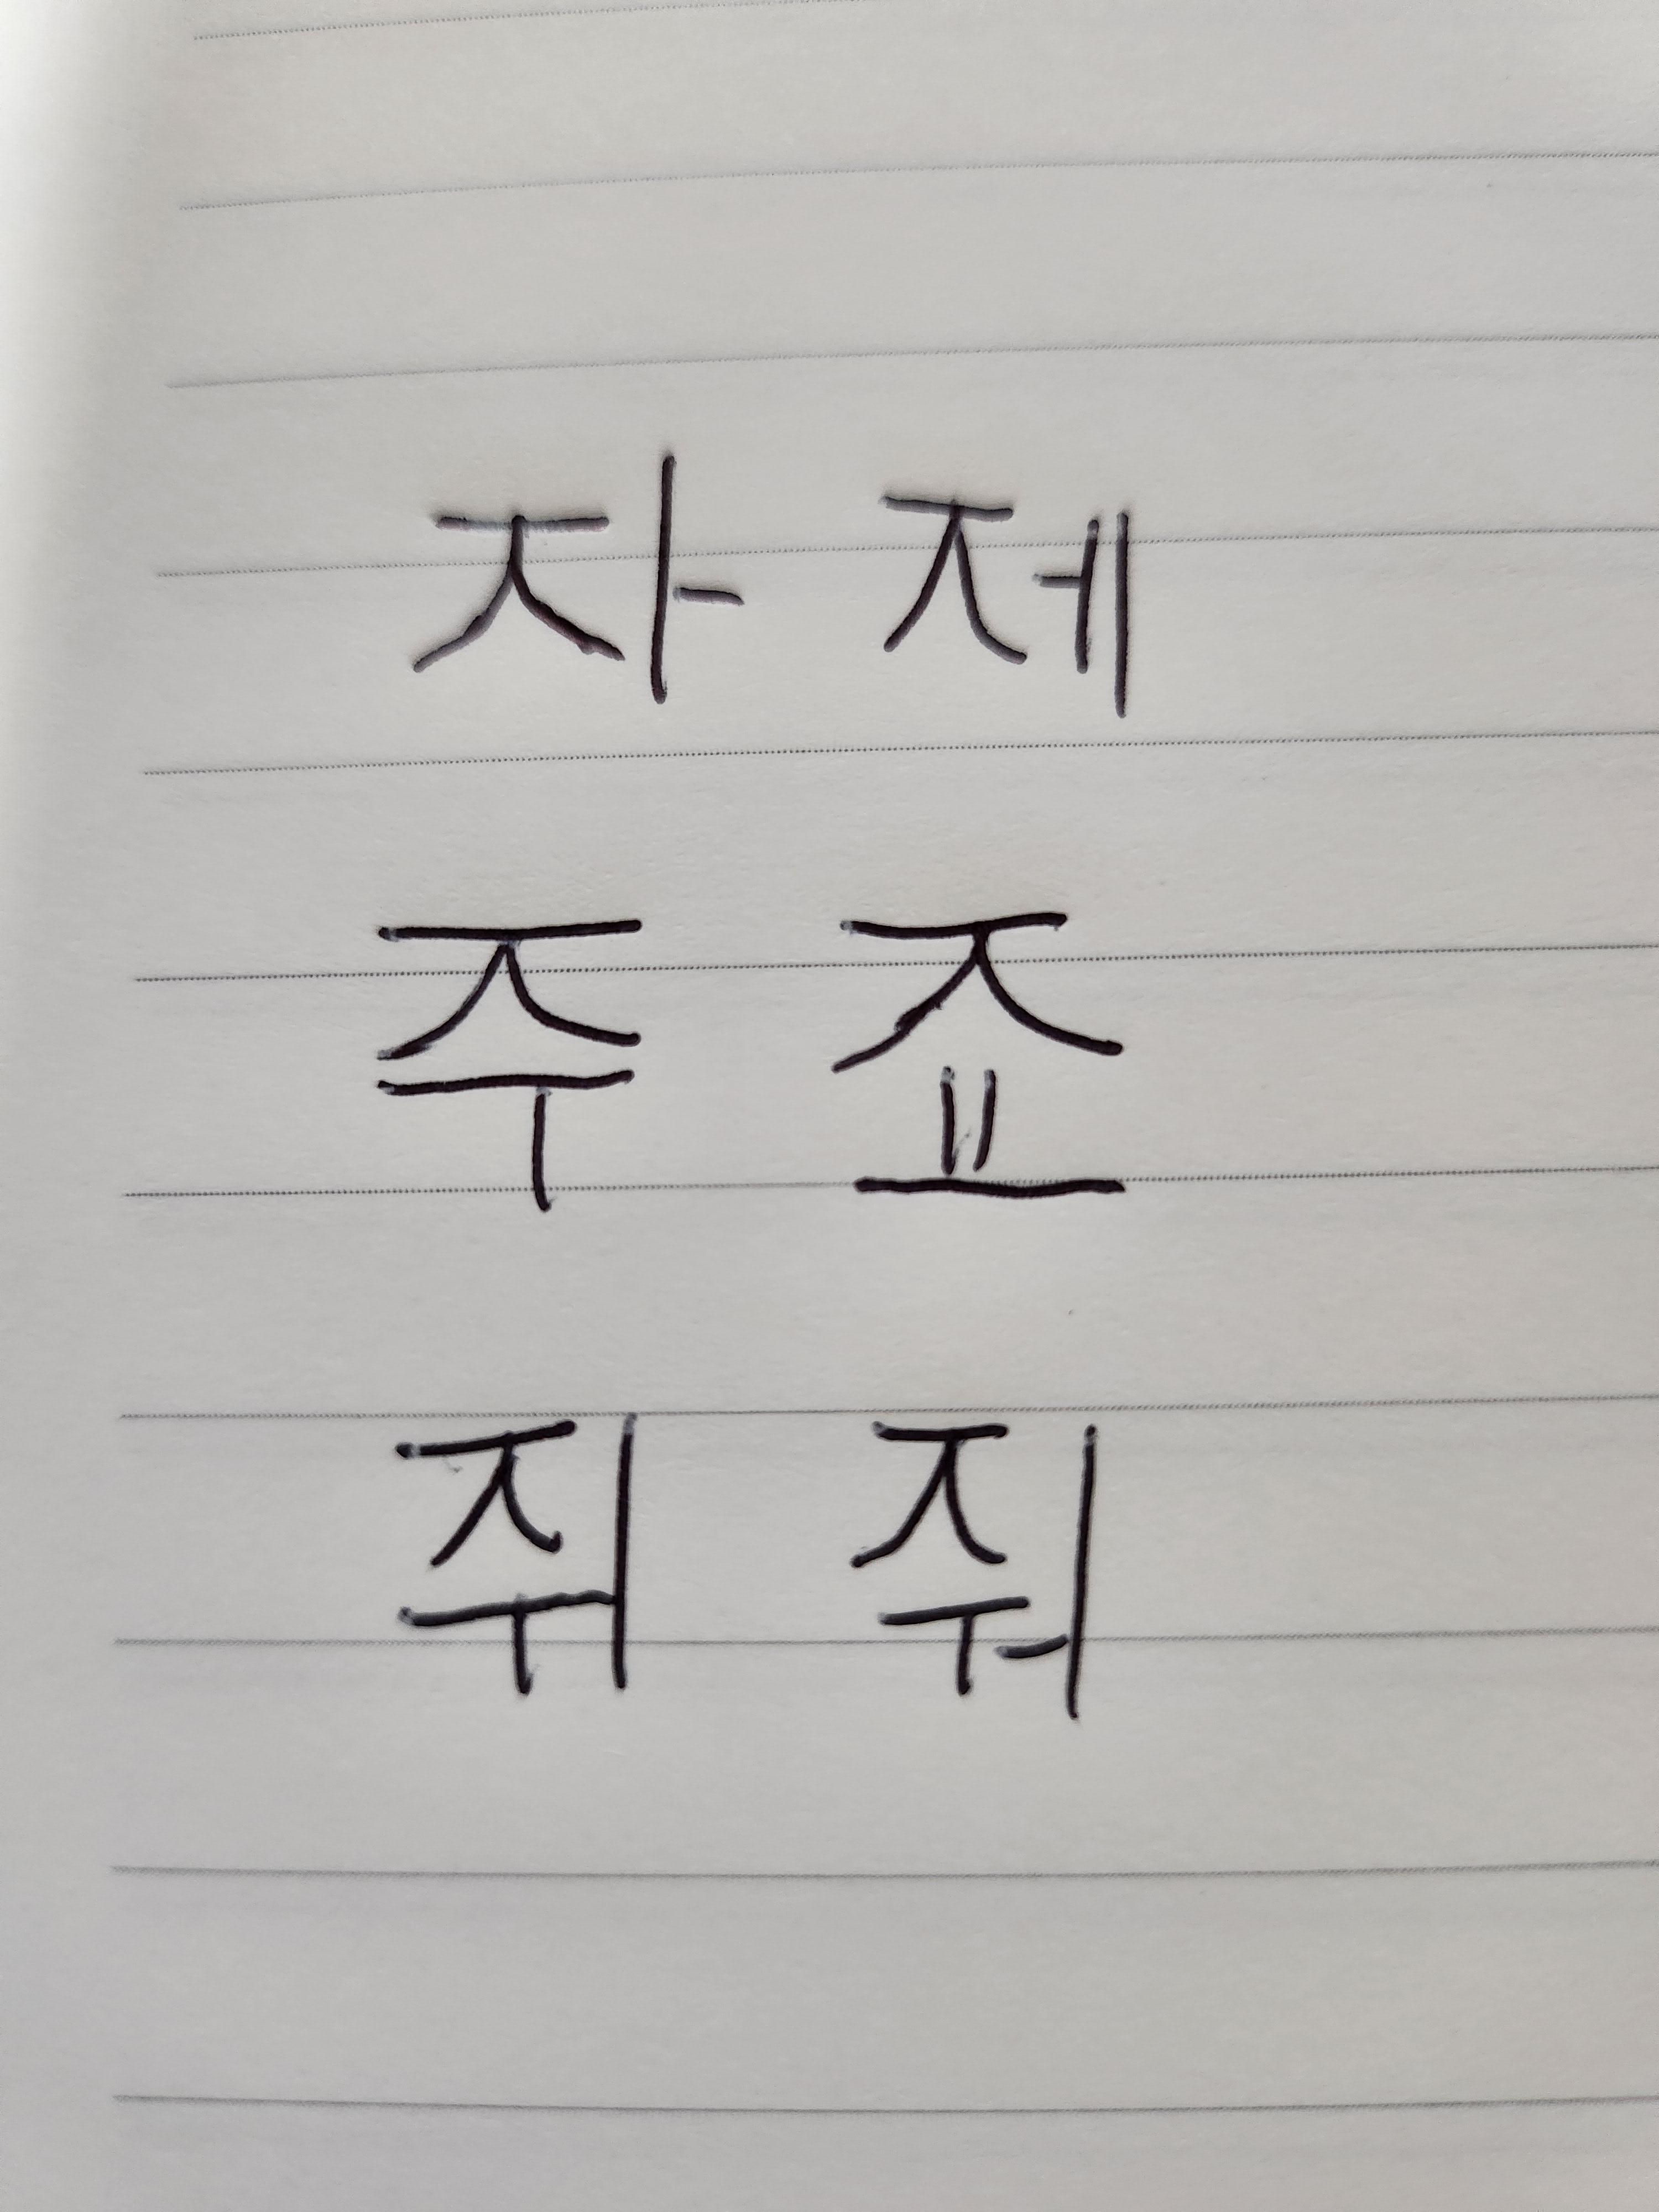 자 제
주 죠
쥐 줘